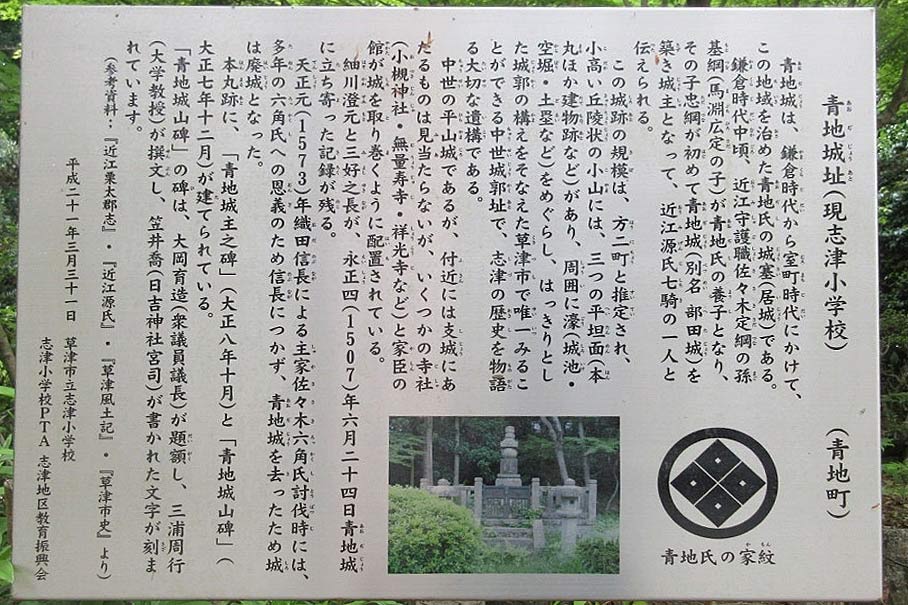 青地城址(現志津小学校) (青地町)
青地城は、鎌倉時代から室町時代にかけて、
この地域を治めた青地氏の城塞(居城)である。
鎌倉時代中頃、近江守護職佐々木定綱の孫
基綱(馬淵広定の子)が青地氏の養子となり、
その子忠綱が初めて青地城(別名 部田城)を
築き城主となって、近江源氏七騎の一人と
伝えられる。
この城跡の規模は、方二町と推定され、
小高い丘陵状の小山には、三つの平坦面(本
丸ほか建物跡など)があり、周囲に濠・城池・
空堀・土塁など)をめぐらし、はっきりとし
た城郭の構えをそなえた草津市で唯一みるこ
とができる中世城郭址で、志津の歴史を物語
る大切な遺構である。
中世の平山城であるが、付近には支城にあ
たるものは見当たらないが、いくつかの寺社
(小槻神社・無量寿寺・祥光寺など)と家臣の
館が城を取り巻くように配置されている。
細川澄元と三好之長が、永正四(1507)年六月二十四日青地城
に立ち寄った記録が残る。
天正元(1573)年織田信長による主家佐々木六角氏討伐時には、
多年の六角氏への恩義のため信長につかず、青地城を去ったため城
は廃城となった。
本丸跡に、「青地城主之碑」(大正八年十月)と「青地城山碑」(
大正七年十二月)が建てられている。
「青地城山碑」の碑は、大岡育造(衆議員議長)が題額し、三浦周行
(大学教授)が撰文し、笠井喬(日吉神社宮司)が書かれた文字が刻ま
れています。
(参考資料:『近江栗太郡志』・『近江源氏』・『草津風土記』・『草津市史』より)
平成二十一年三月三十一日 草津市立志津小学校
志津小学校PTA 志津地区教育振興会
青地氏の家紋